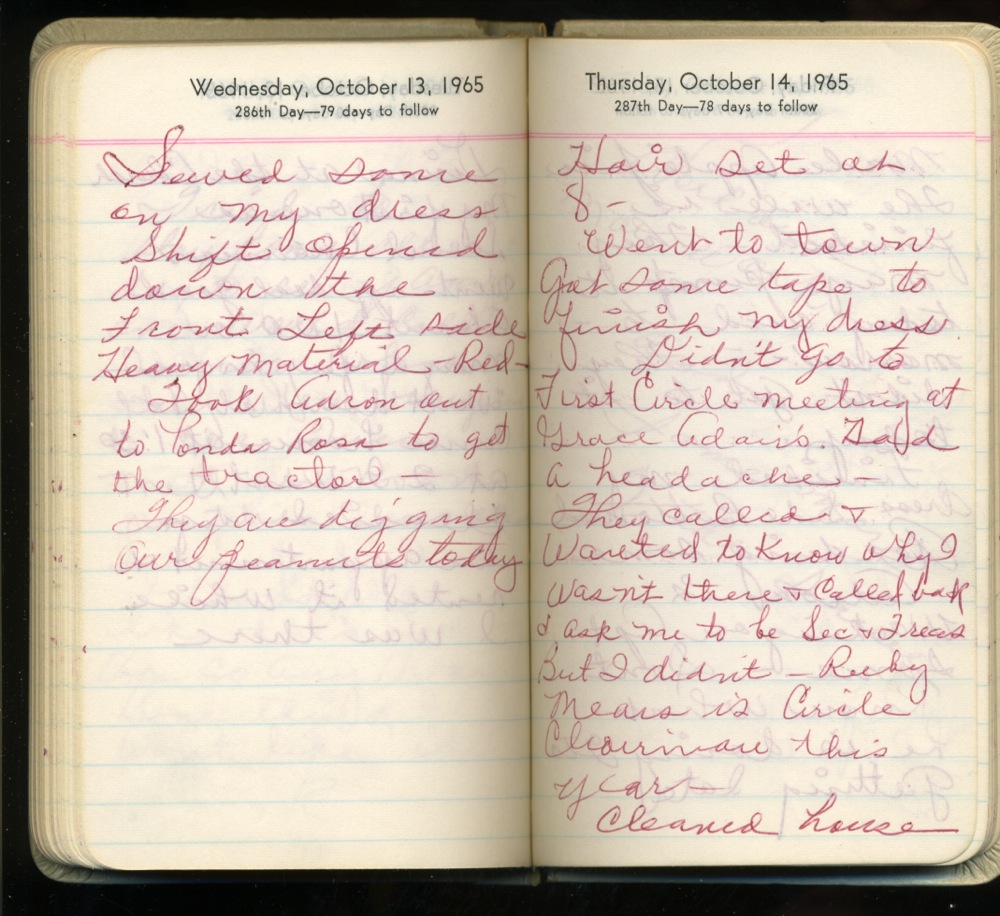 Wednesday, October 13, 1965
286th Day—79 days to follow
Sewed some
on my dress
Shift opened
down the
Front Left side
Heavy Material - Red -
Took Aaron out
to Ponda Rosa to get
the tractor -
They are digging
our peanuts today
Thursday, October 14, 1965
287th Day—78 days to follow
Hair set at
8 -
Went to town
Got some tape to
finish my dress
Didn't go to
First Circle meeting at
Grace Adair's. Had
a headache -
They called &
Wanted to Know why I
wasn't there & Called back
& ask me to be Sec & Treas
But I didn't - Ruby
Mears is Circle
Chairman this
year -
Cleaned house